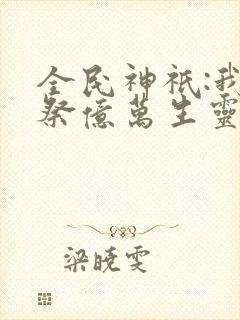 全民神祇:我
祭億萬生靈
梁曉雯